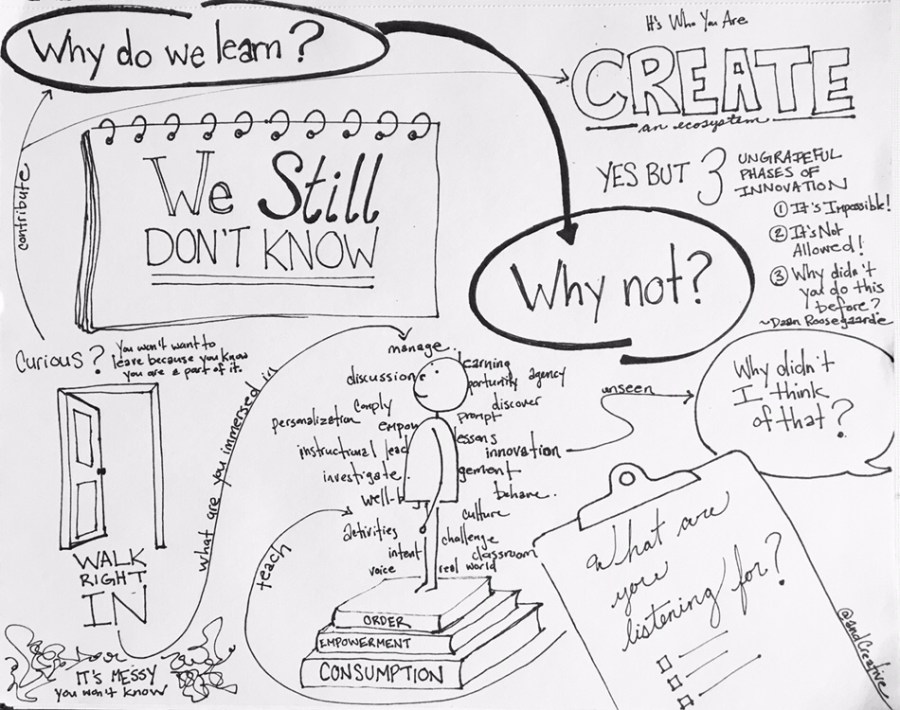 Why do we learn?
It's Who You Are
CREATE
an ecosystem
We Still
DON'T KNOW
contribute
YES BUT 3 UNGRATEFUL
PHASES OF
INNOVATION
① It's Impossible!
② It's Not
Allowed!
③ Why didn't
you do this
before?
~Daan Roosegaarde
Why not?
Curious?
You won't want to
leave because you know
you are a part of it.
WALK
RIGHT
IN
IT'S MESSY
you won't know
what are you immersed in
manage
discussion
earning
portunity agency
comply
discover
personalization
empow
prompt
instructional lead
essons
innovation
investigate
gement
behave
well-b
culture
activities
challenge
intent
classroom
voice
real world
teach
ORDER
EMPOWERMENT
CONSUMPTION
unseen
Why didn't
I think
of that?
What are
you
listening for?
@andCreative